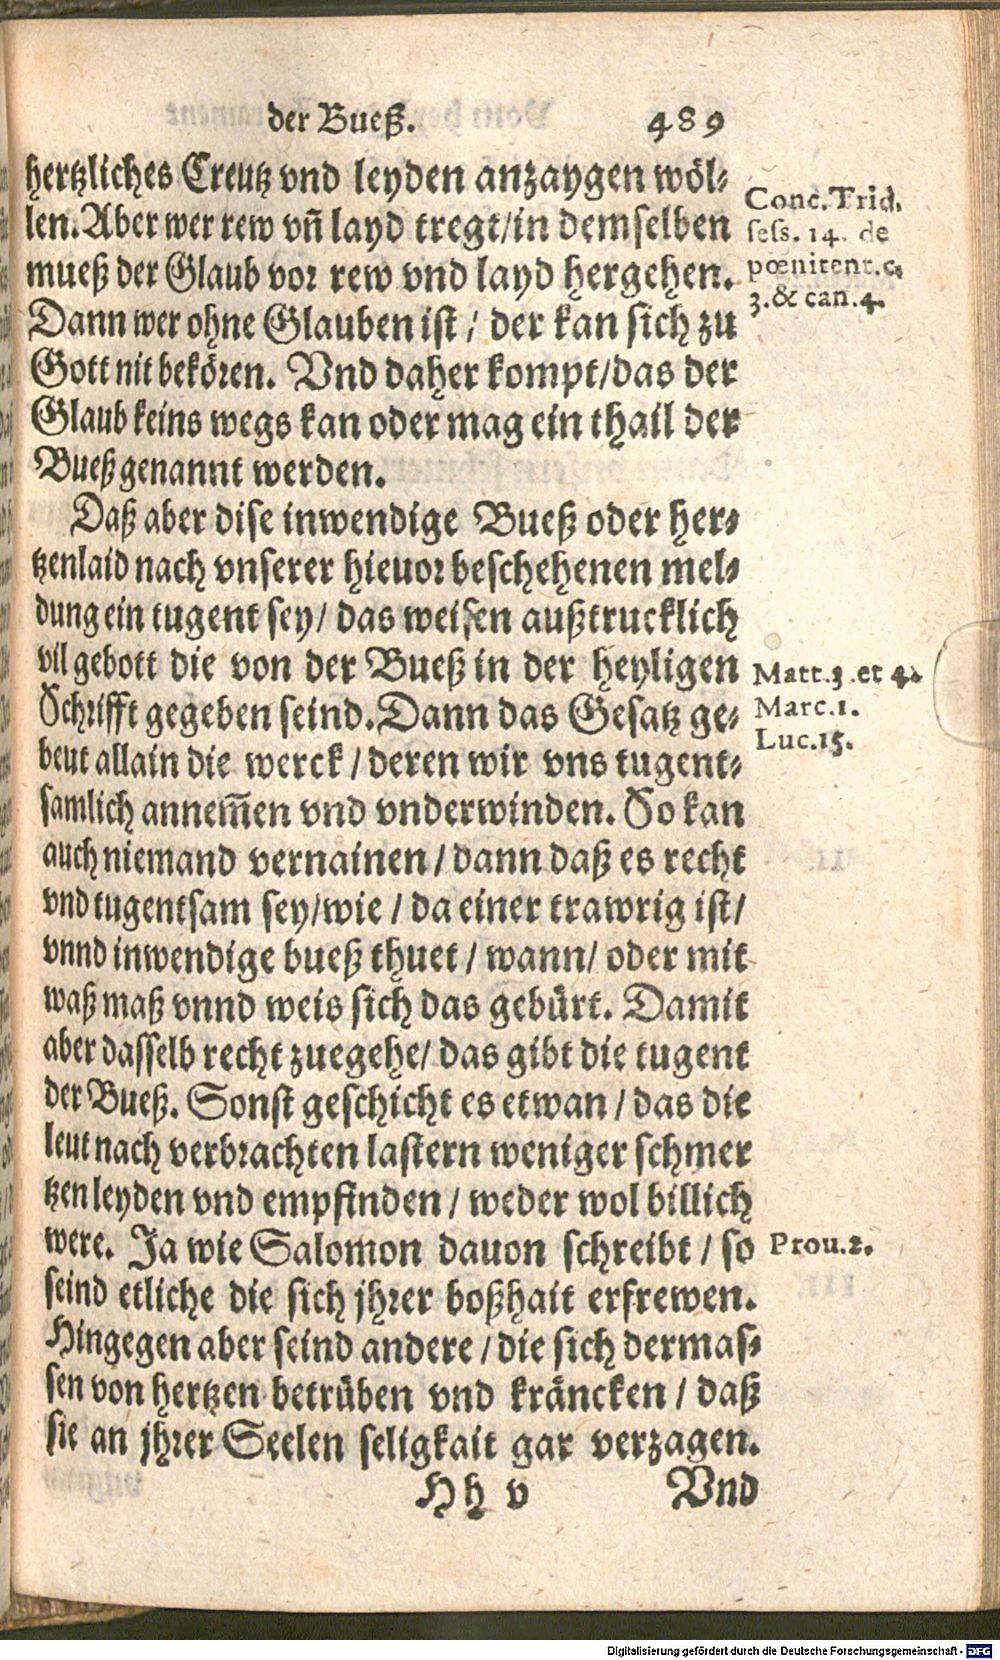 der Bueß. 489
hertzliches Creutz vnd leyden anzaygen wöl-
len. Aber wer rew vñ layd tregt/in demselben
mueß der Glaub vor rew vnd layd hergehen.
Dann wer ohne Glauben ist / der kan sich zu
Gott nit bekören. Vnd daher kompt/das der
Glaub keins wegs kan oder mag ein thail der
Bueß genannt werden.
Conc. Trid.
sess. 14. de
pœnitent. c.
3. & can. 4.
Daß aber dise inwendige Bueß oder her-
tzenlaid nach vnserer hieuor beschehenen mel-
dung ein tugent sey / das weisen außtrucklich
vil gebott die von der Bueß in der heyligen
Schrifft gegeben seind. Dann das Gesatz ge-
beut allain die werck / deren wir vns tugent-
samlich annem̃en vnd vnderwinden. So kan
auch niemand vernainen / dann daß es recht
vnd tugentsam sey/wie / da einer trawrig ist/
vnnd inwendige bueß thuet / wann/ oder mit
waß maß vnnd weis sich das gebürt. Damit
aber dasselb recht zuegehe/ das gibt die tugent
der Bueß. Sonst geschicht es etwan / das die
leut nach verbrachten lastern weniger schmer
tzen leyden vnd empfinden / weder wol billich
were. Ja wie Salomon dauon schreibt / so
seind etliche die sich jhrer boßhait erfrewen.
Hingegen aber seind andere / die sich dermas-
sen von hertzen betrüben vnd kräncken / daß
sie an jhrer Seelen seligkait gar verzagen.
Matt. 3. et 4.
Marc. 1.
Luc. 15.
Prou. 2.
Hh v Vnd
Digitalisierung gefördert durch die Deutsche Forschungsgemeinschaft - DFG